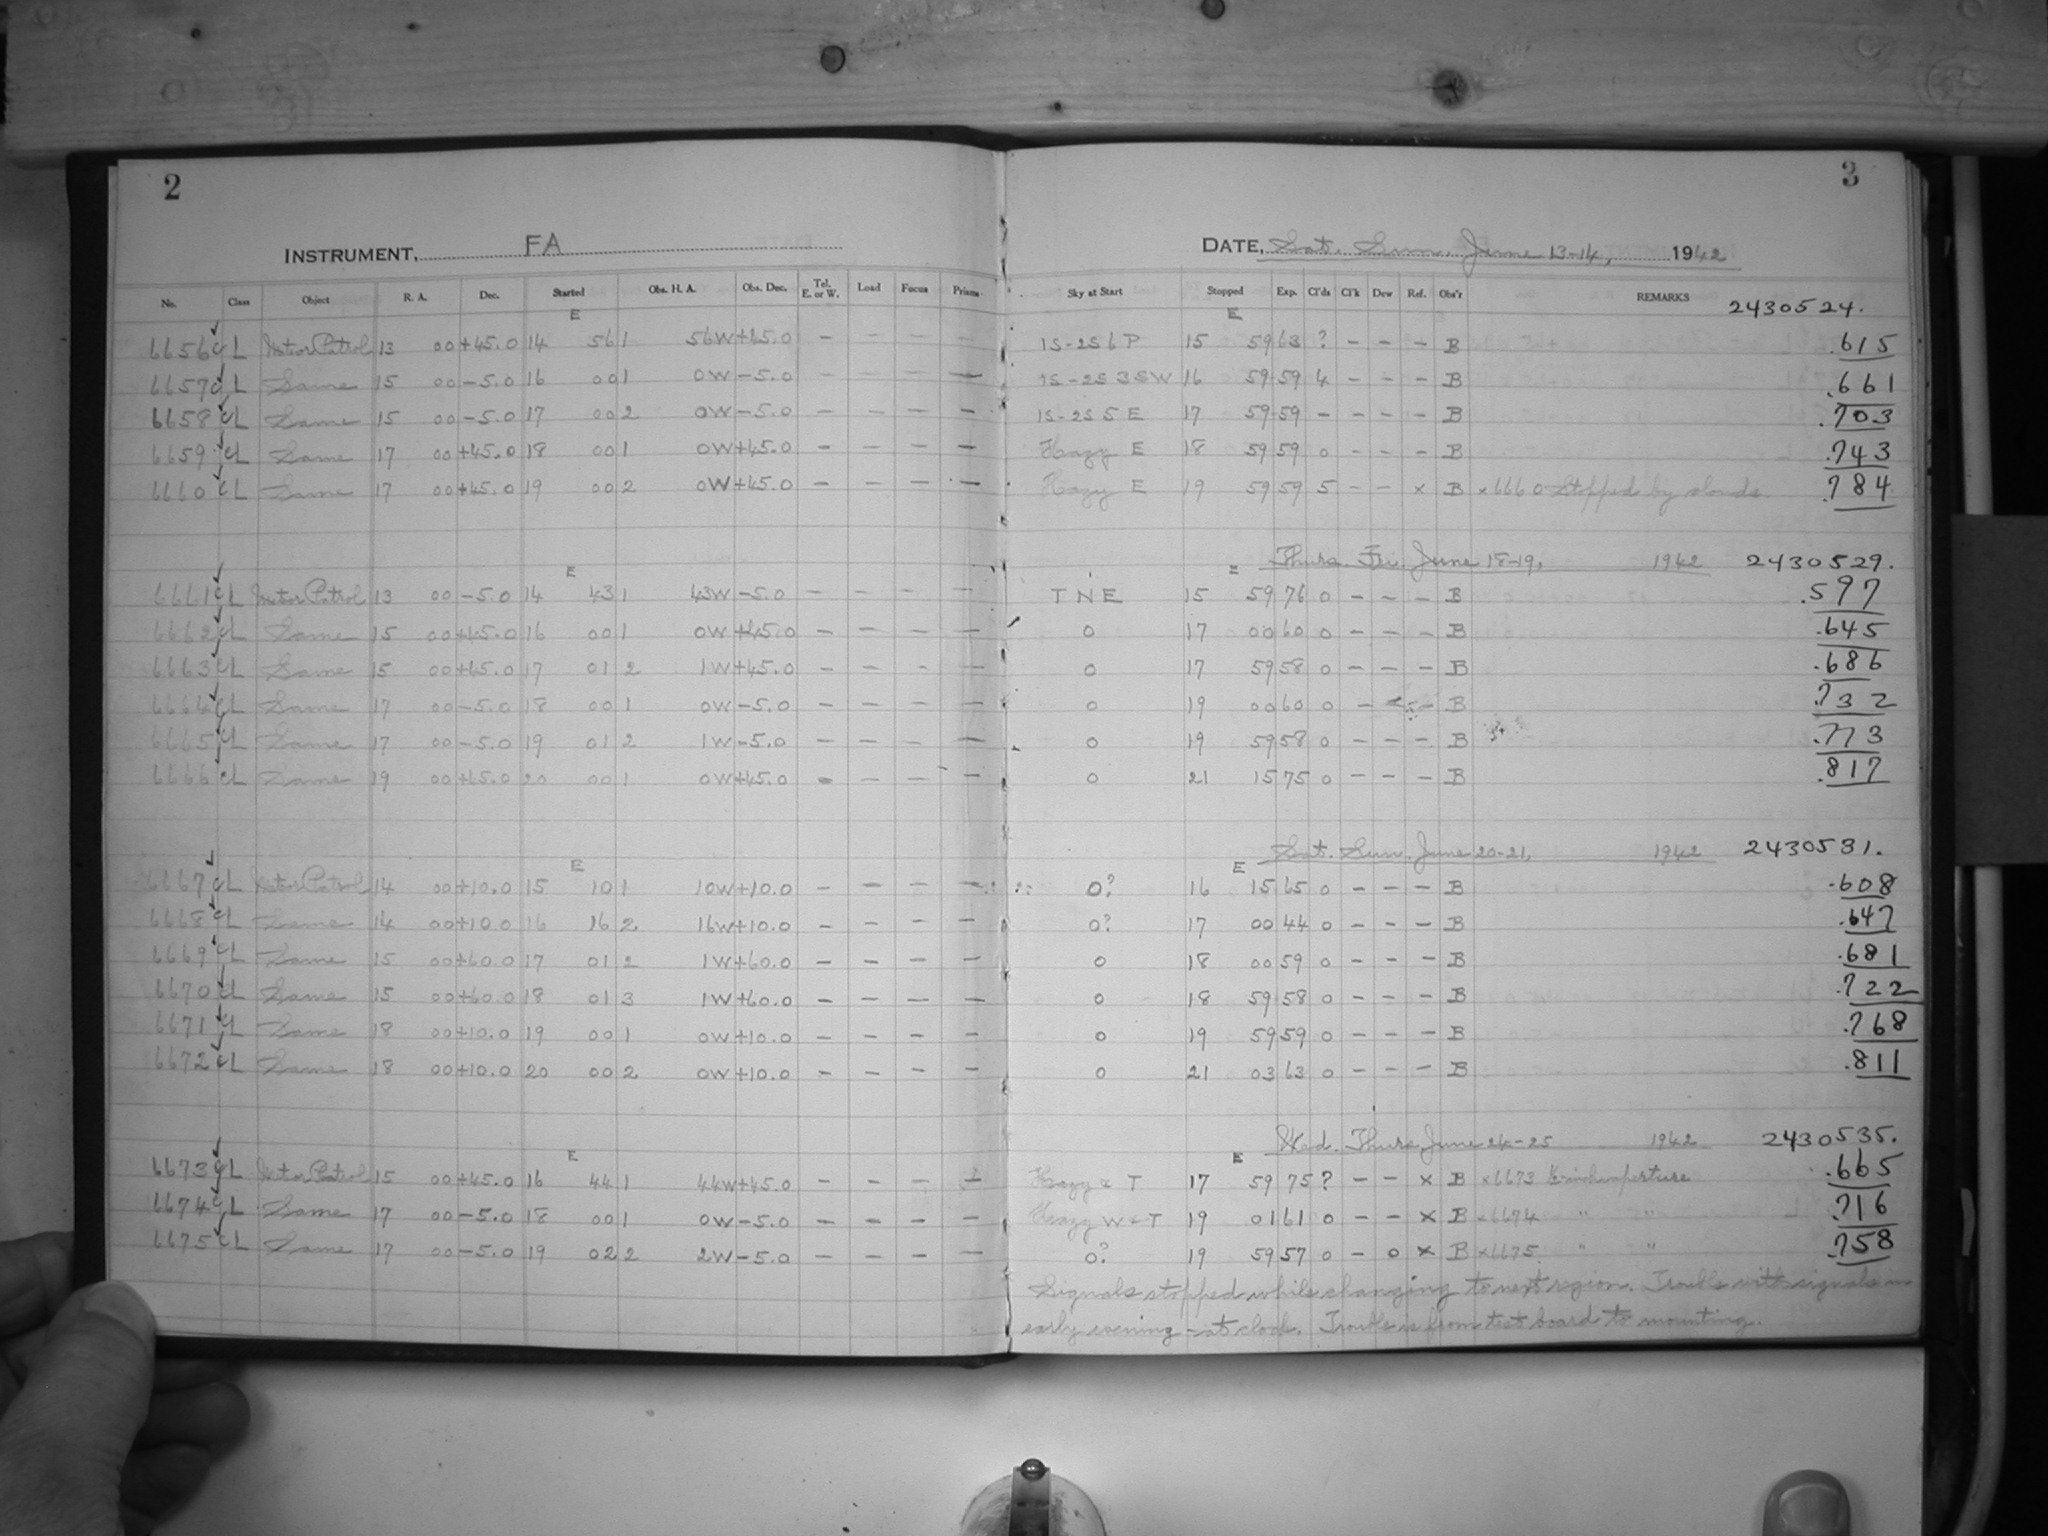 2
3
INSTRUMENT, FA
DATE, Sat. Sun. June 13-14, 1942
No. Class Object R. A. Dec. Started Obs. H. A. Obs. Dec. Tel. E. or W. Load Focus Prisms Sky at Start Stopped Exp. Cl'ds Cl'k Dew Ref. Obs'r REMARKS
E E 2430524.
6656 CL Meteor Patrol 13 00 +45.0 14 56 1 56W +45.0 – – – – 1S-2S6P 15 59 63 ? – – – B .615
6657 CL Same 15 00 -5.0 16 00 1 0W -5.0 – – – – 1S-2S3SW 16 59 59 4 – – – B .661
6658 CL Same 15 00 -5.0 17 00 2 0W -5.0 – – – – 1S-2S5E 17 59 59 – – – – B .703
6659 CL Same 17 00 +45.0 18 00 1 0W +45.0 – – – – Hazy E 18 59 59 0 – – – B .743
6660 CL Same 17 00 +45.0 19 00 2 0W +45.0 – – – – Hazy E 19 59 59 5 – – x B x6660 Stopped by clouds. .784
E E Thurs. Fri. June 18-19, 1942 2430529.
6661 CL Meteor Patrol 13 00 -5.0 14 43 1 43W -5.0 – – – – T N E 15 59 76 0 – – – B .597
6662 CL Same 15 00 +45.0 16 00 1 0W +45.0 – – – – 0 17 00 60 0 – – – B .645
6663 CL Same 15 00 +45.0 17 01 2 1W +45.0 – – – – 0 17 59 58 0 – – – B .686
6664 CL Same 17 00 -5.0 18 00 1 0W -5.0 – – – – 0 19 00 60 0 – – – B .732
6665 CL Same 17 00 -5.0 19 01 2 1W -5.0 – – – – 0 19 59 58 0 – – – B .773
6666 CL Same 19 00 +45.0 20 00 1 0W +45.0 – – – – 0 21 15 75 0 – – – B .817
E E Sat. Sun. June 20-21, 1942 2430531.
6667 CL Meteor Patrol 14 00 +10.0 15 10 1 10W +10.0 – – – – 0? 16 15 65 0 – – – B .608
6668 CL Same 14 00 +10.0 16 16 2 16W +10.0 – – – – 0? 17 00 44 0 – – – B .647
6669 CL Same 15 00 +60.0 17 01 2 1W +60.0 – – – – 0 18 00 59 0 – – – B .681
6670 CL Same 15 00 +60.0 18 01 3 1W +60.0 – – – – 0 18 59 58 0 – – – B .722
6671 CL Same 18 00 +10.0 19 00 1 0W +10.0 – – – – 0 19 59 59 0 – – – B .768
6672 CL Same 18 00 +10.0 20 00 2 0W +10.0 – – – – 0 21 03 63 0 – – – B .811
E E Wed. Thurs. June 24-25 1942 2430535.
6673 CL Meteor Patrol 15 00 +45.0 16 44 1 44W +45.0 – – – – Hazy & T 17 59 75 ? – – x B x6673 aperture .665
6674 CL Same 17 00 -5.0 18 00 1 0W -5.0 – – – – Hazy W & T 19 01 61 0 – – x B x6674 " " .716
6675 CL Same 17 00 -5.0 19 02 2 2W -5.0 – – – – 0? 19 59 57 0 – 0 x B x6675 " " .758
Signals stopped while changing to next region. Trouble with signals in
early evening – at clock. Trouble is from test board to mounting.